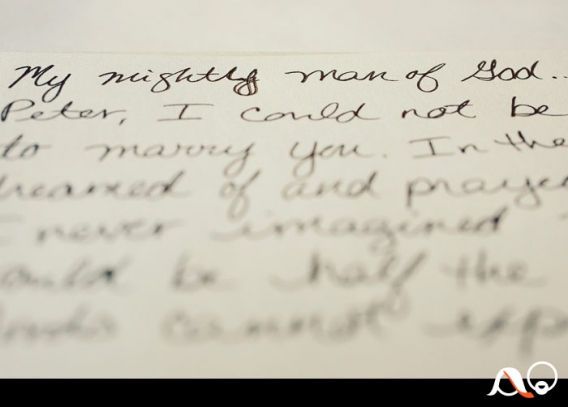 My mighty man of God..
Peter, I could not be
to marry you. In the
dreamed of and prayer
I never imagined
ould be half the
cannot